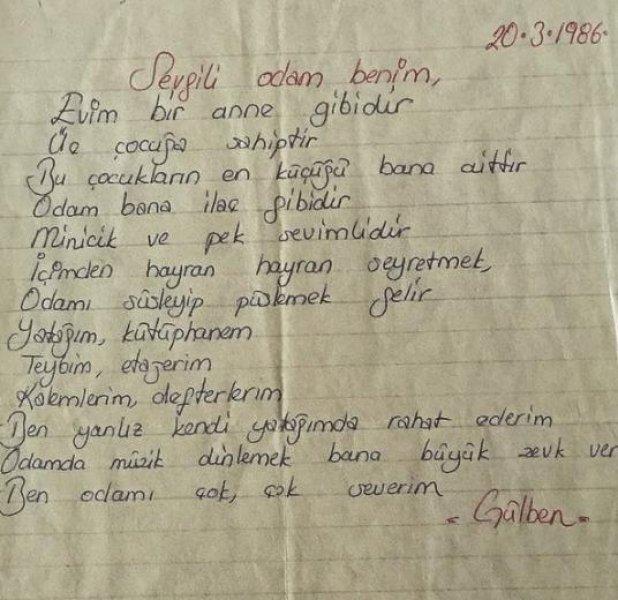 20.3.1986.
Sevgili odam benim,
Evim bir anne gibidir
Üç çocuğa sahiptir
Bu çocukların en küçüğü bana aittir
Odam bana ilaç gibidir
Minicik ve pek sevimlidir
İçimden hayran hayran seyretmek,
Odamı süsleyip püslemek gelir
Yatağım, kütüphanem
Teybim, etajerim
Kalemlerim, defterlerim
Ben yanlız kendi yatağımda rahat ederim
Odamda müzik dinlemek bana büyük zevk ver
Ben odamı çok, çok severim
- Gülben -